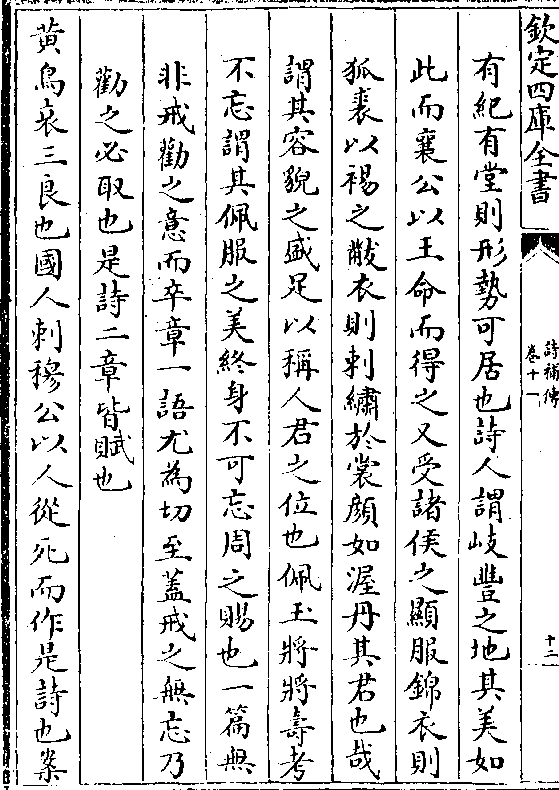 欽定四庫全書
詩補傳
卷十一
十二
有紀有堂則形勢可居也詩人謂岐豐之地其美如
此而襄公以王命而得之又受諸侯之顯服錦衣則
狐裘以裼之黻衣則刺繡於裳顔如渥丹其君也哉
謂其容貌之盛足以稱人君之位也佩玉將將壽考
不忘謂其佩服之美終身不可忘周之賜也一篇無
非戒勸之意而卒章一語尤為切至蓋戒之無忘乃
勸之必取也是詩二章皆賦也
黄鳥哀三良也國人刺穆公以人從死而作是詩也案